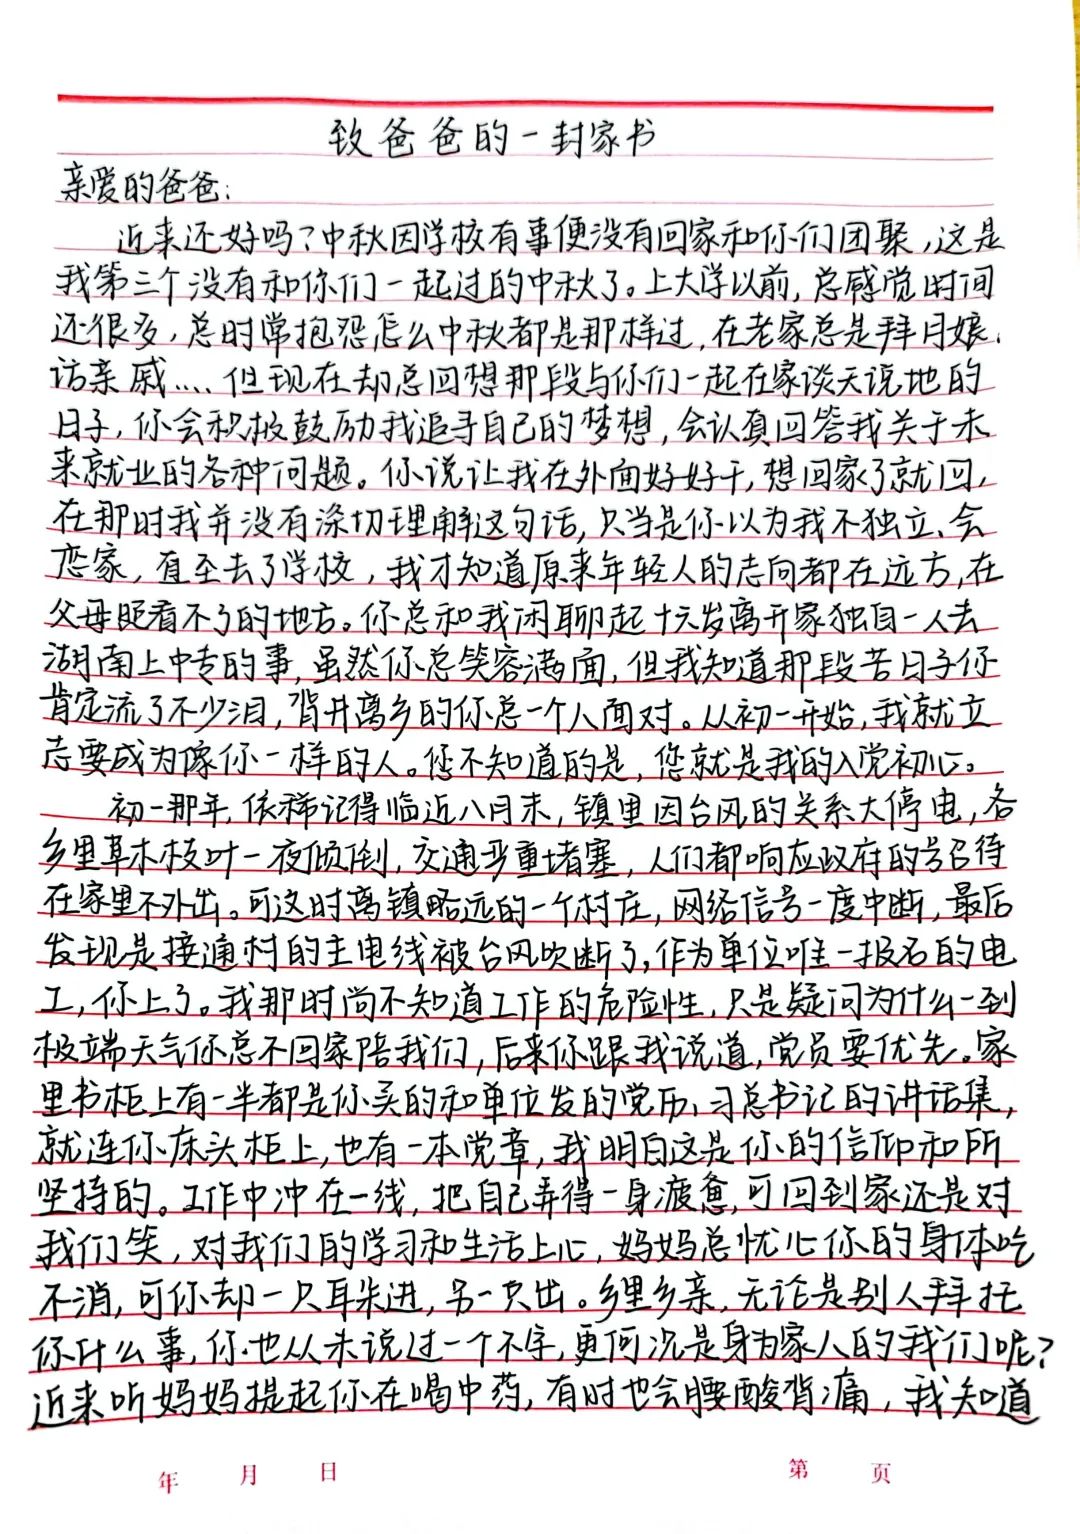 致爸爸的一封家书
亲爱的爸爸：
近来还好吗？中秋因学校有事便没有回家和你们团聚，这是
我第三个没有和你们一起过的中秋了。上大学以前，总感觉时间
还很多，总时常抱怨怎么中秋都是那样过，在老家总是拜月娘、
访亲戚....但现在却总回想那段与你们一起在家谈天说地的
日子，你会积极鼓励我追寻自己的梦想，会认真回答我关于未
来就业的各种问题。你说让我在外面好好干，想回家了就回，
在那时我并没有深切理解这句话，只当是你以为我不独立、会
恋家，直至去了学校，我才知道原来年轻人的志向都在远方，在
父母眼看不了的地方。你总和我闲聊起十六岁离开家独自一人去
湖南上中专的事，虽然你总笑容满面，但我知道那段苦日子你
肯定流了不少泪，背井离乡的你总一个人面对。从初一开始，我就立
志要成为像你一样的人。您不知道的是，您就是我的入党初心。
初一那年，依稀记得临近八月末，镇里因台风的关系大停电，各
乡里草木枝叶一夜倾倒，交通严重堵塞，人们都响应政府的号召待
在家里不外出。可这时离镇略远的一个村庄，网络信号一度中断，最后
发现是接通村的主电线被台风吹断了，作为单位唯一报名的电
工，你上了。我那时尚不知道工作的危险性，只是疑问为什么一到
极端天气你总不回家陪我们，后来你跟我说道，党员要优先。家
里书柜上有一半都是你买的和单位发的党历、习总书记的讲话集，
就连你床头柜上，也有一本党章，我明白这是你的信仰和所
坚持的。工作中冲在一线，把自己弄得一身疲惫，可回到家还是对
我们笑，对我们的学习和生活上心，妈妈总忧心你的身体吃
不消，可你却一只耳朵进，另一只出。乡里乡亲，无论是别人拜托
你什么事，你也从未说过一个不字，更何况是身为家人的我们呢？
近来听妈妈提起你在喝中药，有时也会腰酸背痛，我知道
年 月 日 第 页